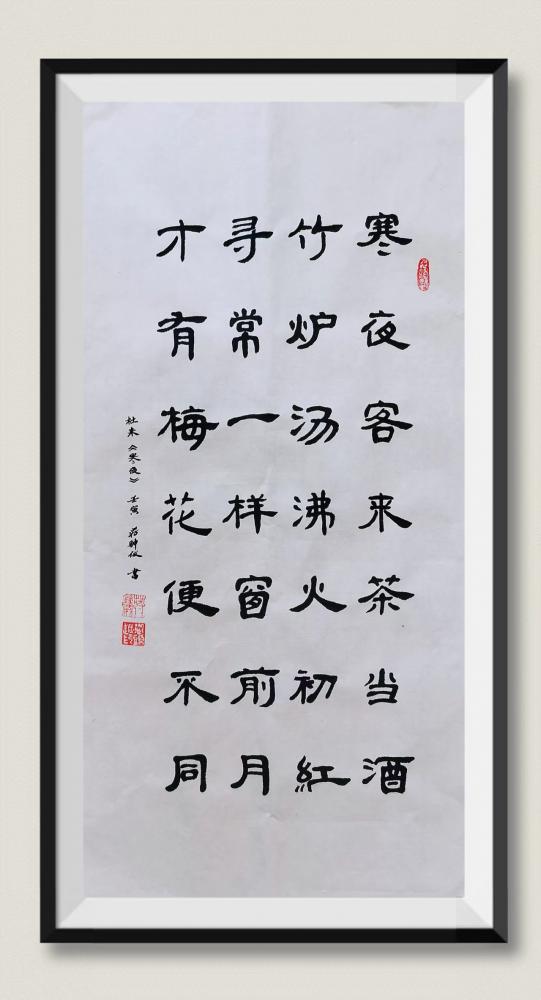 寒夜客来茶当酒
竹炉汤沸火初紅
寻常一样窗前月
才有梅花便不同
杜耒《寒夜》壬寅 书